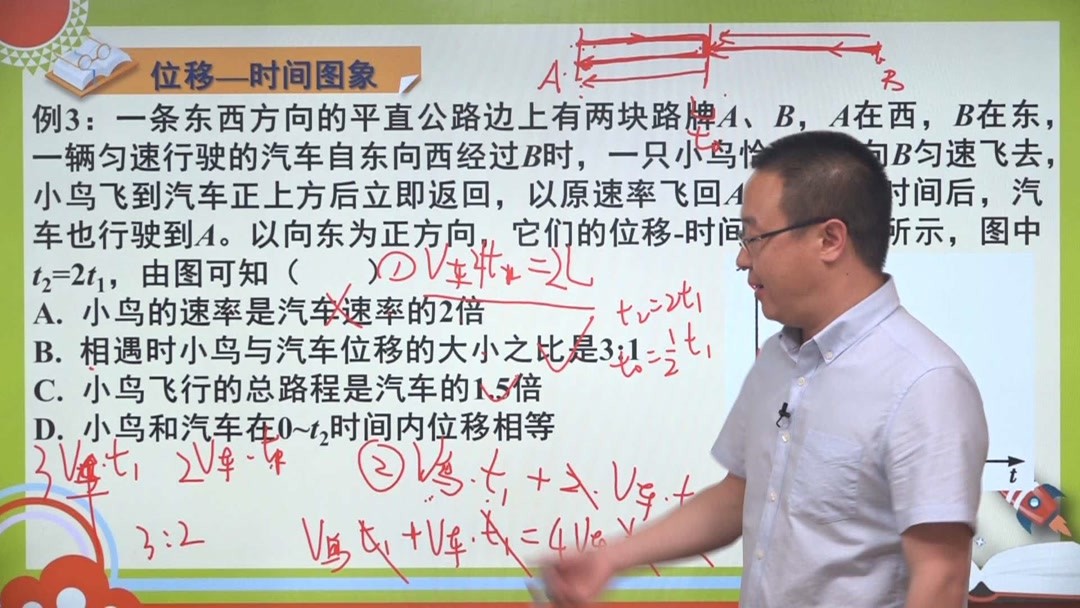 位移—时间图象
A
B
例3：一条东西方向的平直公路边上有两块路牌A、B，A在西，B在东，
一辆匀速行驶的汽车自东向西经过B时，一只小鸟恰 向B匀速飞去，
小鸟飞到汽车正上方后立即返回，以原速率飞回A 时间后，汽
车也行驶到A。以向东为正方向，它们的位移-时间 所示，图中
t₂=2t₁，由图可知（ ）
① V车 =2L
A. 小鸟的速率是汽车速率的2倍
t₂=2t₁
B. 相遇时小鸟与汽车位移的大小之比是3:1
t₀=½t₁
C. 小鸟飞行的总路程是汽车的1.5倍
D. 小鸟和汽车在0~t₂时间内位移相等
t
3V车·t₁ 2V车·t
② V鸟·t₁+2·V车·t
3:2
V鸟t₁+V车·t₁=4V